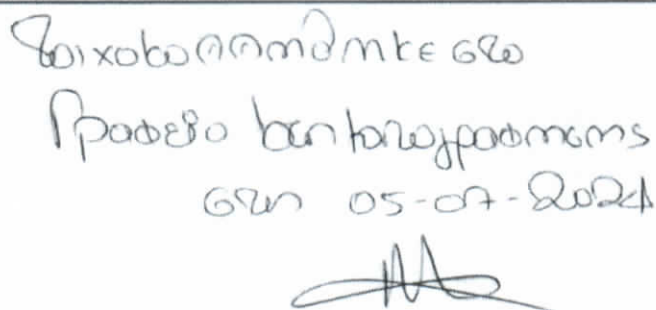 Τοιχοκολλήθηκε στο
Γραφείο Κτηματογράφησης
στη 05-07-2024